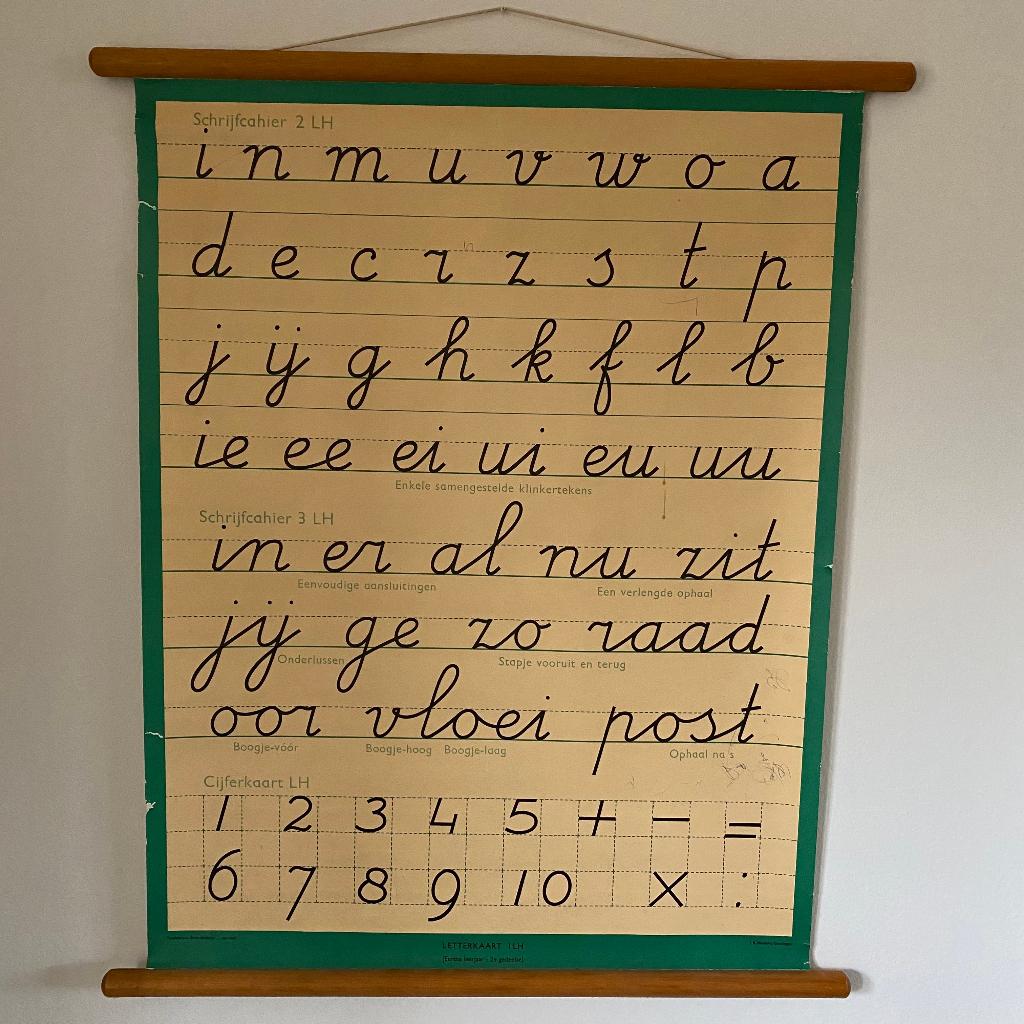 Schrijfcahier 2 LH
i n m u v w o a
d e c r z s t p
j ij g h k f l b
ie ee ei ui eu uu
Enkele samengestelde klinkertekens
Schrijfcahier 3 LH
in er al nu zit
Eenvoudige aansluitingen Een verlengde ophaal
jij ge zo raad
Onderlussen Stapje vooruit en terug
oor vloei post
Boogje-vóór Boogje-hoog Boogje-laag Ophaal na s
Cijferkaart LH
1 2 3 4 5 + - =
6 7 8 9 10 x :
LETTERKAART 1 LH
(Eerste leerjaar - 2e gedeelte)